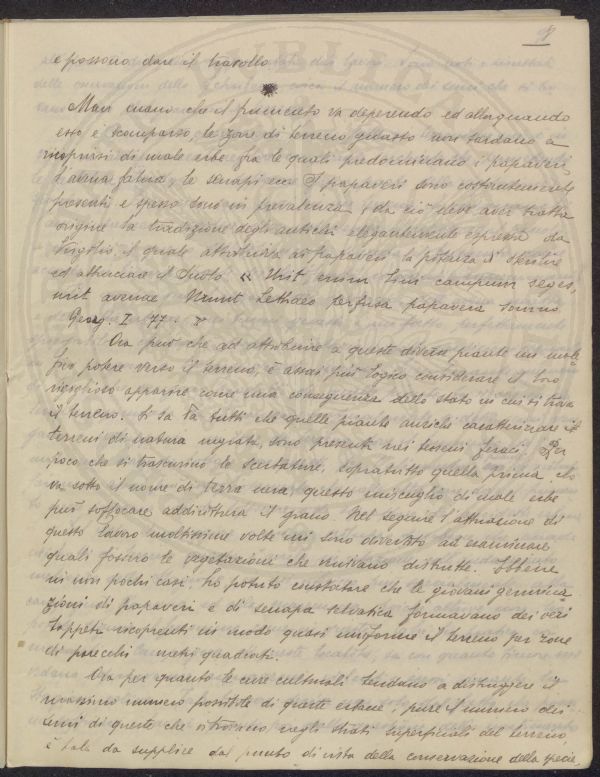 e possono dare il tracollo
Man mano che il frumento va deperendo ed allorquando
esso è scomparso, le zone di terreno guasto non tardano a
ricoprirsi di male erbe fra le quali predominano i papaveri,
l'avena fatua, le senapi ecc. I papaveri sono costantemente
presenti e spesso sono in prevalenza, da ciò deve aver tratta
origine la tradizione degli antichi elegantemente espressa da
Virgilio, il quale attribuiva ai papaveri la potenza di sterilire
ed abbruciare il suolo « Urit enim lini campum seges,
urit avenae Urunt Lethaeo perfusa papavera somno
Georg. I 77. »
Ora più che ad attribuire a queste diverse piante un male-
fico potere verso il terreno, è assai più logico considerare il loro
rigoglioso apparire come una conseguenza dello stato in cui si trova
il terreno. Si sa da tutti che quelle piante anziché caratterizzare i
terreni di natura magra, sono presenti nei terreni feraci. Per
poco che si trascurino le scerbature, sopratutto quella prima, che
va sotto il nome di terra nera, questo miscuglio di male erbe
può soffocare addirittura il grano. Nel seguire l'attuazione di
questo lavoro moltissime volte mi sono divertito ad esaminare
quali fossero le vegetazioni che venivano distrutte. Ebbene
in non pochi casi, ho potuto constatare che le giovani germina
zioni di papaveri e di senapa selvatica formavano dei veri
tappeti ricoprenti in modo quasi uniforme il terreno per zone
di parecchi metri quadrati.
Ora per quanto le cure culturali tendano a distruggere il
massimo numero possibile di queste estanee, pure il numero dei
semi di queste che si trovano negli strati superficiali del terreno,
è tale da supplire dal punto di vista della conservazione della specie,